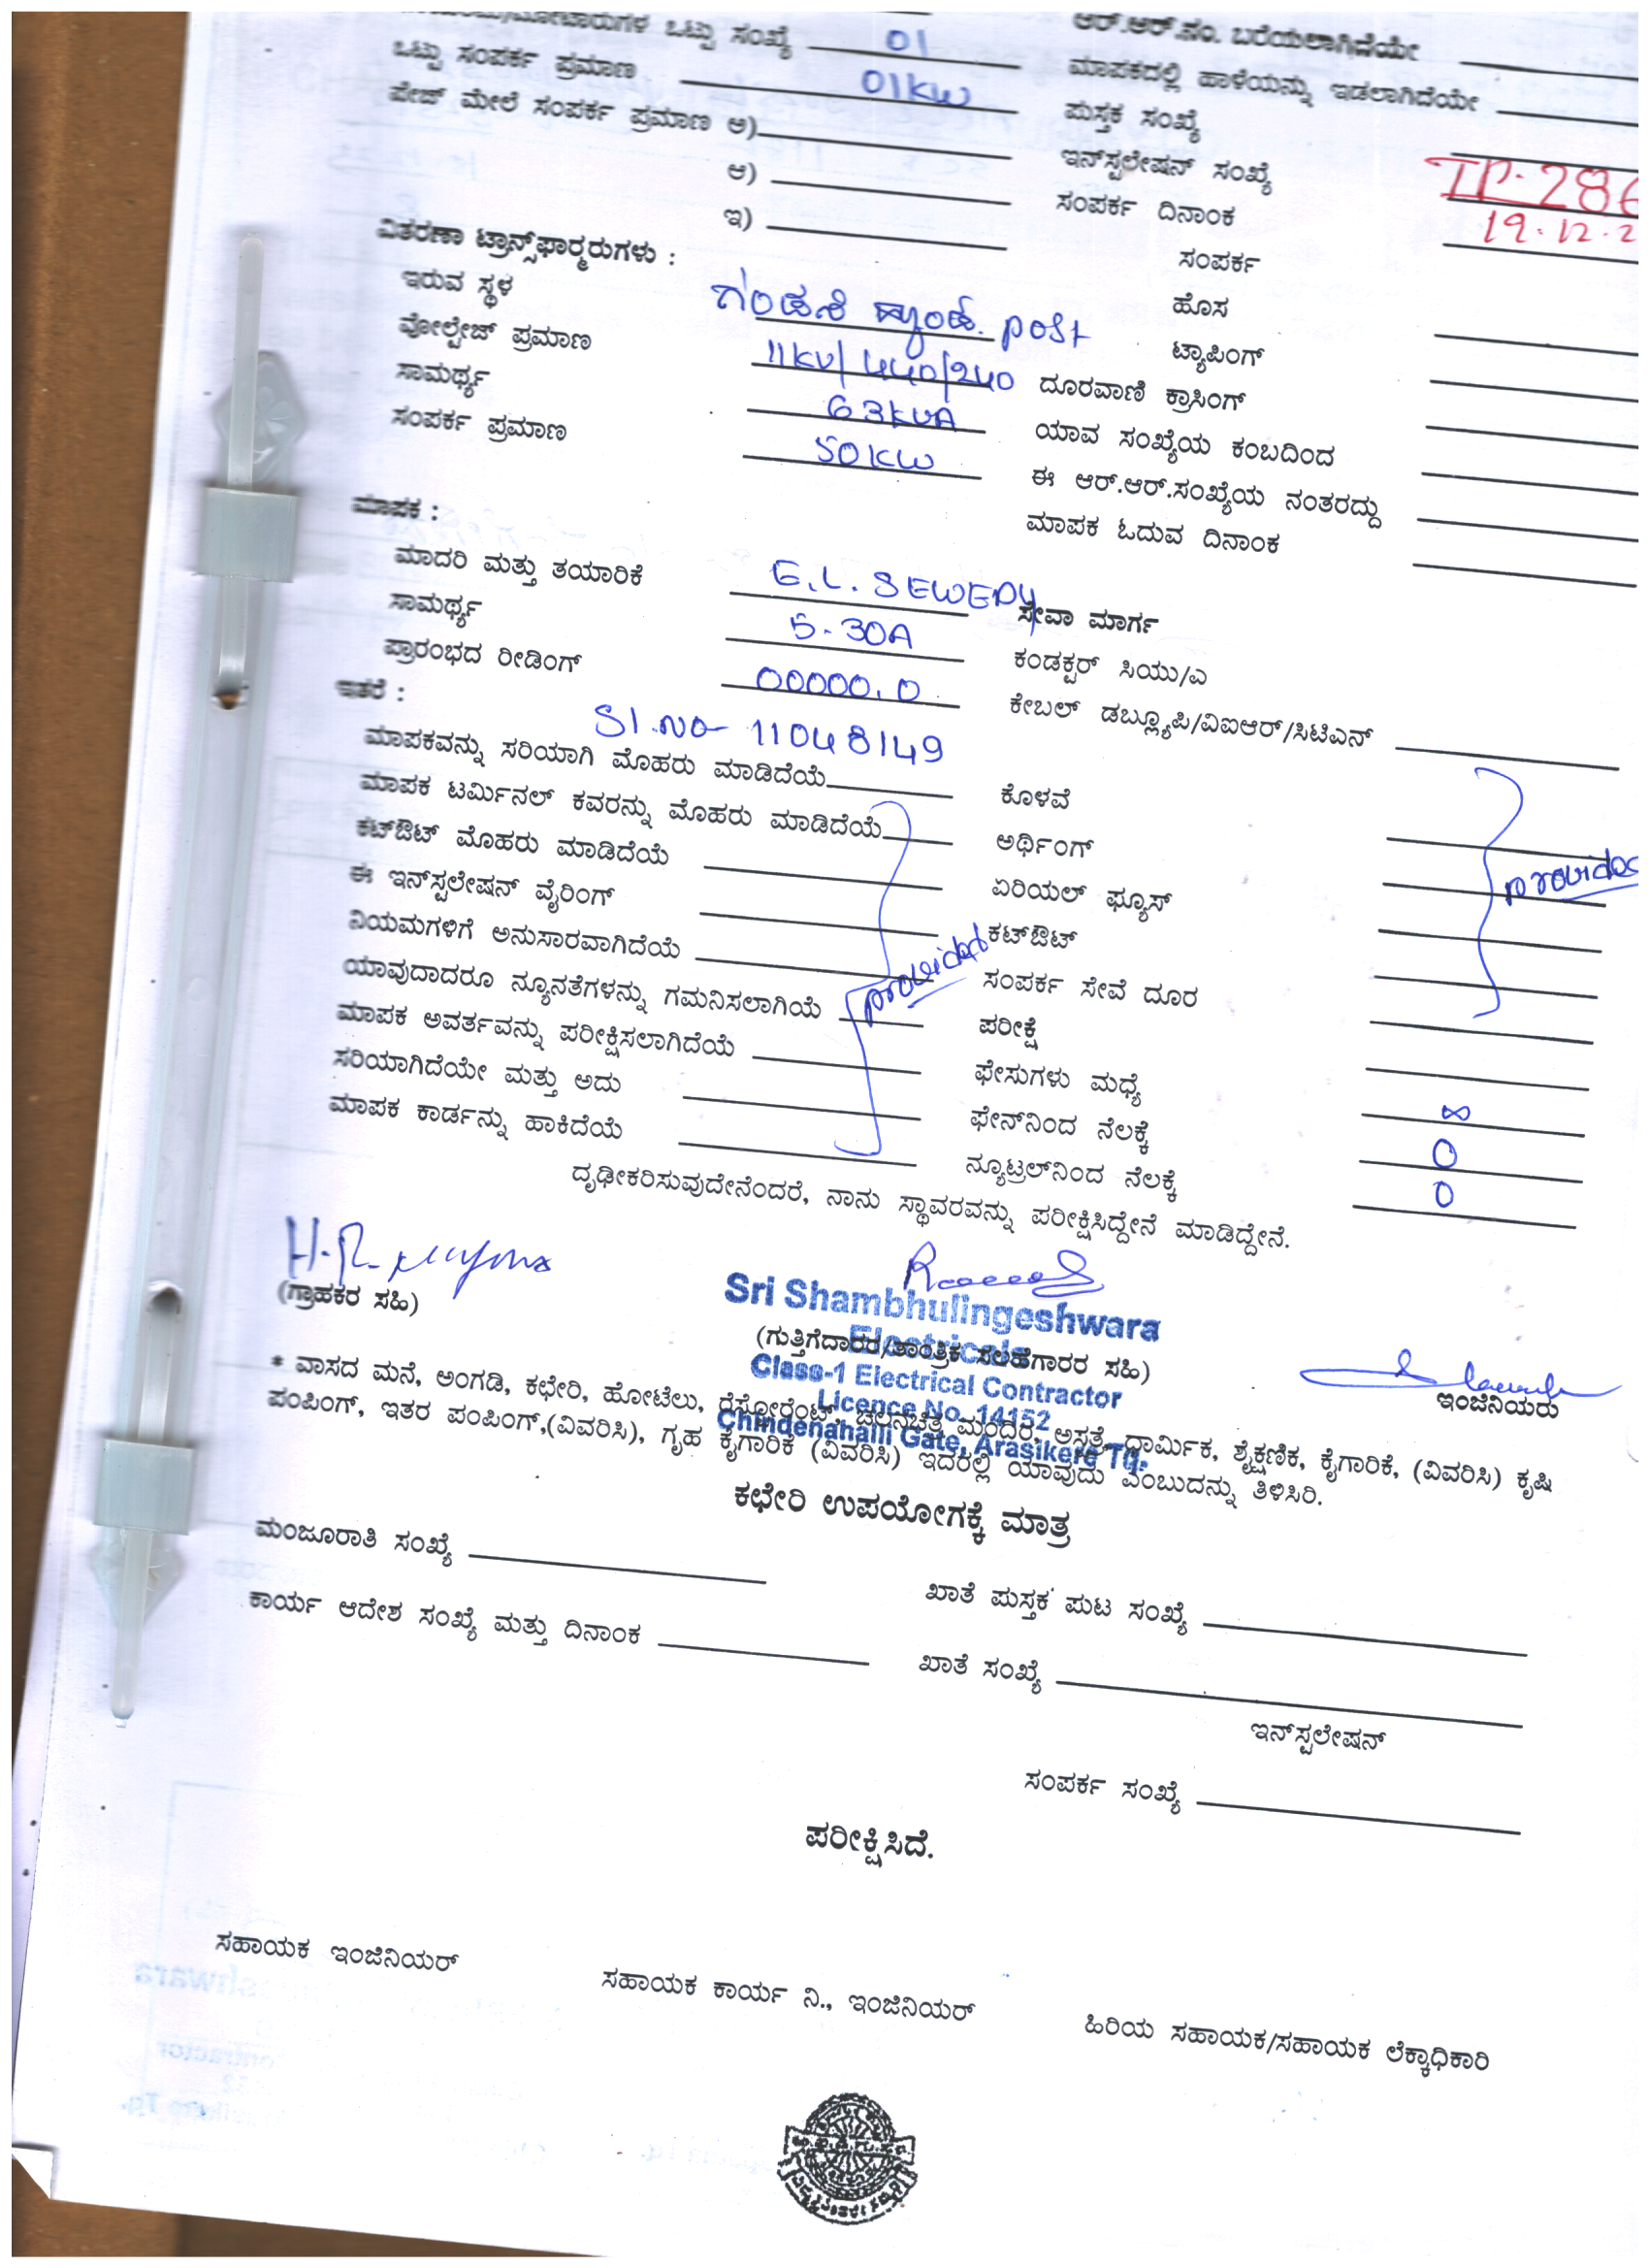 ಒಟ್ಟು ಸಂಖ್ಯೆ 01
ಒಟ್ಟು ಸಂಪರ್ಕ ಪ್ರಮಾಣ 01KW
ಪೇಜ್ ಮೇಲೆ ಸಂಪರ್ಕ ಪ್ರಮಾಣ ಅ)
ಆ)
ಇ)
ವಿತರಣಾ ಟ್ರಾನ್ಸ್‌ಫಾರ್ಮರುಗಳು :
ಇರುವ ಸ್ಥಳ post
ವೋಲ್ಟೇಜ್ ಪ್ರಮಾಣ 11KV/440/240
ಸಾಮರ್ಥ್ಯ 63KVA
ಸಂಪರ್ಕ ಪ್ರಮಾಣ 50KW
ಮಾಪಕ :
ಮಾದರಿ ಮತ್ತು ತಯಾರಿಕೆ
ಸಾಮರ್ಥ್ಯ 5-30A
ಪ್ರಾರಂಭದ ರೀಡಿಂಗ್ 00000.0
ಇತರೆ :
Sl.No- 11048149
ಮಾಪಕವನ್ನು ಸರಿಯಾಗಿ ಮೊಹರು ಮಾಡಿದೆಯೆ
ಮಾಪಕ ಟರ್ಮಿನಲ್ ಕವರನ್ನು ಮೊಹರು ಮಾಡಿದೆಯೆ
ಕಟ್‌ಔಟ್ ಮೊಹರು ಮಾಡಿದೆಯೆ
ಈ ಇನ್‌ಸ್ಟಲೇಷನ್ ವೈರಿಂಗ್
ನಿಯಮಗಳಿಗೆ ಅನುಸಾರವಾಗಿದೆಯೆ
provided
ಯಾವುದಾದರೂ ನ್ಯೂನತೆಗಳನ್ನು ಗಮನಿಸಲಾಗಿಯೆ
ಮಾಪಕ ಅವರ್ತವನ್ನು ಪರೀಕ್ಷಿಸಲಾಗಿದೆಯೆ
ಸರಿಯಾಗಿದೆಯೇ ಮತ್ತು ಅದು
ಮಾಪಕ ಕಾರ್ಡನ್ನು ಹಾಕಿದೆಯೆ
ಆರ್.ಆರ್.ನಂ. ಬರೆಯಲಾಗಿದೆಯೇ
ಮಾಪಕದಲ್ಲಿ ಹಾಳೆಯನ್ನು ಇಡಲಾಗಿದೆಯೇ
ಪುಸ್ತಕ ಸಂಖ್ಯೆ
ಇನ್‌ಸ್ಟಲೇಷನ್ ಸಂಖ್ಯೆ
ಸಂಪರ್ಕ ದಿನಾಂಕ 19.12.2
ಸಂಪರ್ಕ
ಹೊಸ
ಟ್ಯಾಪಿಂಗ್
ದೂರವಾಣಿ ಕ್ರಾಸಿಂಗ್
ಯಾವ ಸಂಖ್ಯೆಯ ಕಂಬದಿಂದ
ಈ ಆರ್.ಆರ್.ಸಂಖ್ಯೆಯ ನಂತರದ್ದು
ಮಾಪಕ ಓದುವ ದಿನಾಂಕ
ಸೇವಾ ಮಾರ್ಗ
ಕಂಡಕ್ಟರ್ ಸಿಯು/ಎ
ಕೇಬಲ್ ಡಬ್ಲ್ಯೂಪಿ/ವಿಐಆರ್/ಸಿಟಿಎನ್
ಕೊಳವೆ
ಅರ್ಥಿಂಗ್
ಏರಿಯಲ್ ಫ್ಯೂಸ್
ಕಟ್‌ಔಟ್
ಸಂಪರ್ಕ ಸೇವೆ ದೂರ
ಪರೀಕ್ಷೆ
ಫೇಸುಗಳು ಮಧ್ಯೆ ∞
ಫೇನ್‌ನಿಂದ ನೆಲಕ್ಕೆ 0
ನ್ಯೂಟ್ರಲ್‌ನಿಂದ ನೆಲಕ್ಕೆ 0
ದೃಢೀಕರಿಸುವುದೇನೆಂದರೆ, ನಾನು ಸ್ಥಾವರವನ್ನು ಪರೀಕ್ಷಿಸಿದ್ದೇನೆ ಮಾಡಿದ್ದೇನೆ.
(ಗ್ರಾಹಕರ ಸಹಿ)
Sri Shambhulingeshwara
Electricals
(ಗುತ್ತಿಗೆದಾರರ/ತಾಂತ್ರಿಕ ಸಲಹೆಗಾರರ ಸಹಿ)
Class-1 Electrical Contractor
Licence No. 14152
Chindenahalli Gate, Arasikere Tq.
ಇಂಜಿನಿಯರು
* ವಾಸದ ಮನೆ, ಅಂಗಡಿ, ಕಛೇರಿ, ಹೋಟೆಲು, ರೆಸ್ಟೋರೆಂಟ್, ಚಲನಚಿತ್ರ ಮಂದಿರ, ಅಸತ್ರೆ, ಧಾರ್ಮಿಕ, ಶೈಕ್ಷಣಿಕ, ಕೈಗಾರಿಕೆ, (ವಿವರಿಸಿ) ಕೃಷಿ
ಪಂಪಿಂಗ್, ಇತರ ಪಂಪಿಂಗ್,(ವಿವರಿಸಿ), ಗೃಹ ಕೈಗಾರಿಕೆ (ವಿವರಿಸಿ) ಇದರಲ್ಲಿ ಯಾವುದು ಎಂಬುದನ್ನು ತಿಳಿಸಿರಿ.
ಕಛೇರಿ ಉಪಯೋಗಕ್ಕೆ ಮಾತ್ರ
ಮಂಜೂರಾತಿ ಸಂಖ್ಯೆ
ಖಾತೆ ಪುಸ್ತಕ ಪುಟ ಸಂಖ್ಯೆ
ಕಾರ್ಯ ಆದೇಶ ಸಂಖ್ಯೆ ಮತ್ತು ದಿನಾಂಕ
ಖಾತೆ ಸಂಖ್ಯೆ
ಇನ್‌ಸ್ಟಲೇಷನ್
ಸಂಪರ್ಕ ಸಂಖ್ಯೆ
ಪರೀಕ್ಷಿಸಿದೆ.
ಸಹಾಯಕ ಇಂಜಿನಿಯರ್
ಸಹಾಯಕ ಕಾರ್ಯ ನಿ., ಇಂಜಿನಿಯರ್
ಹಿರಿಯ ಸಹಾಯಕ/ಸಹಾಯಕ ಲೆಕ್ಕಾಧಿಕಾರಿ